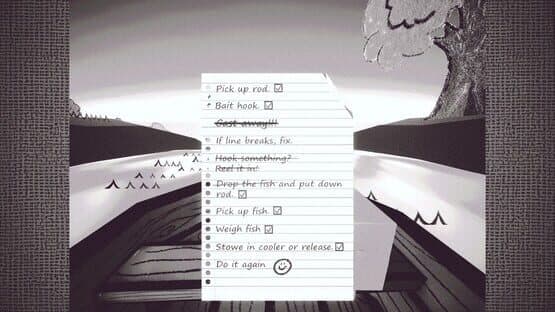 Pick up rod. ☑
Bait hook. ☑
Cast away!!!
If line breaks, fix.
Hook something?
Reel it in!
Drop the fish and put down
rod. ☑
Pick up fish. ☑
Weigh fish ☑
Stowe in cooler or release. ☑
Do it again.